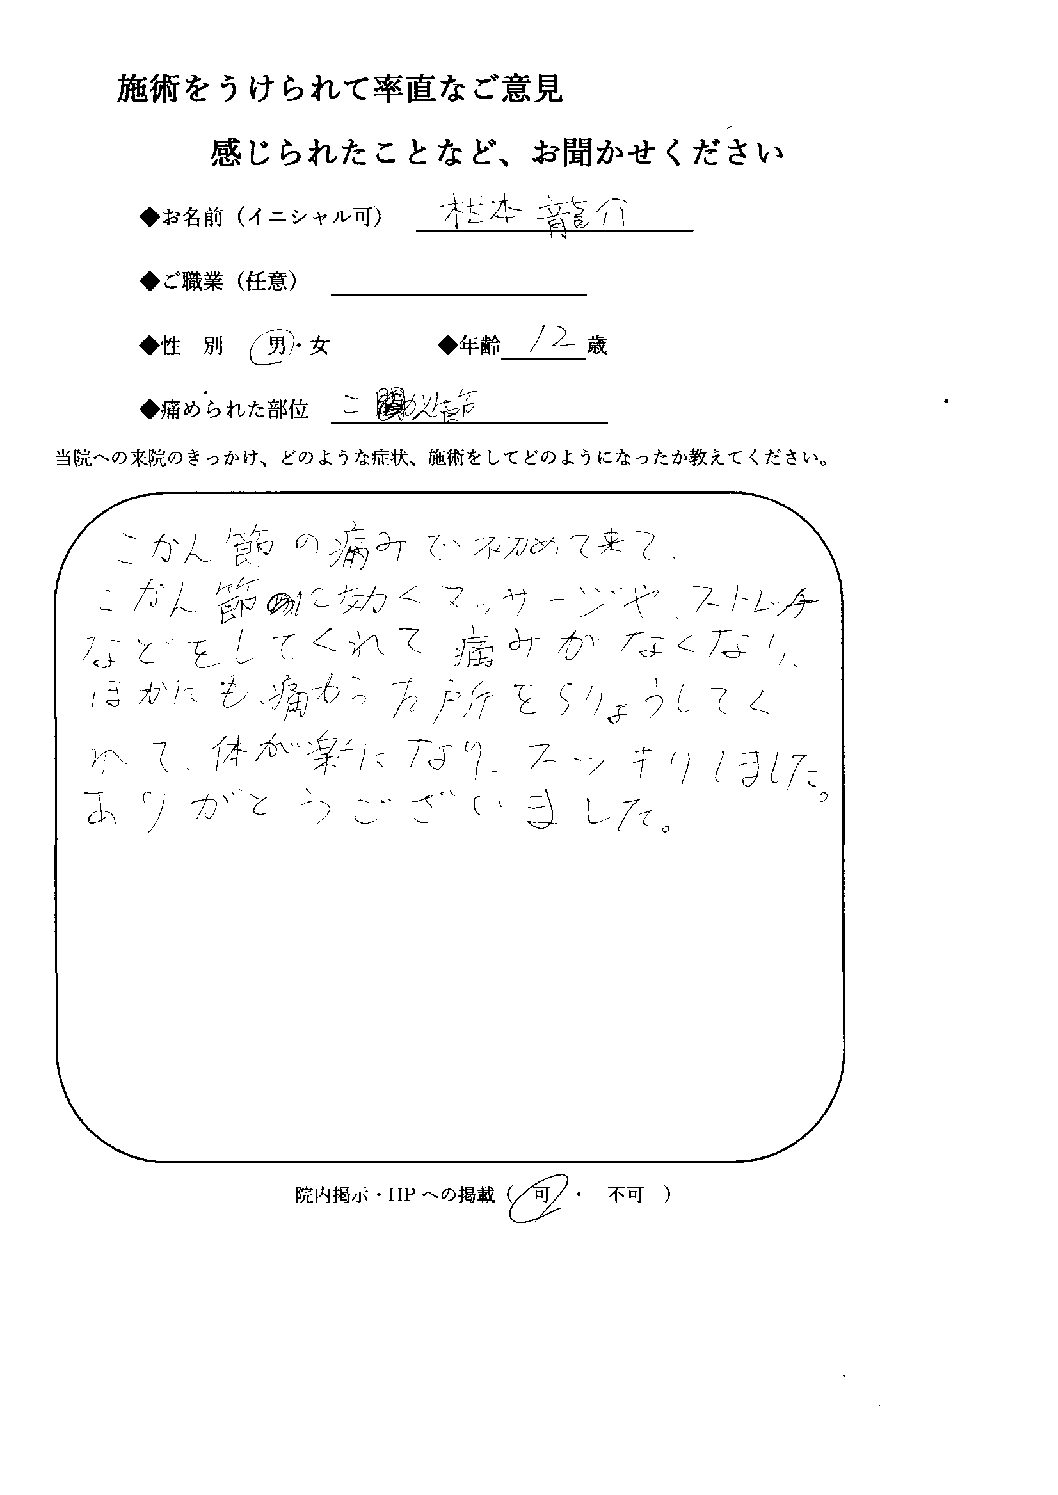 施術をうけられて率直なご意見
感じられたことなど、お聞かせください
◆お名前（イニシャル可） 龍介
◆ご職業（任意）
◆性 別 男・女 ◆年齢 12 歳
◆痛められた部位 こかん節
当院への来院のきっかけ、どのような症状、施術をしてどのようになったか教えてください。
こかん節の痛みで初めて来て、
こかん節に効くマッサージや、ストレッチ
などをしてくれて痛みがなくなり、
ほかにも、痛かった所をちりょうしてく
れて、体が楽になり、スッキリしました。
ありがとうございました。
院内掲示・HPへの掲載（ 可 ・ 不可 ）